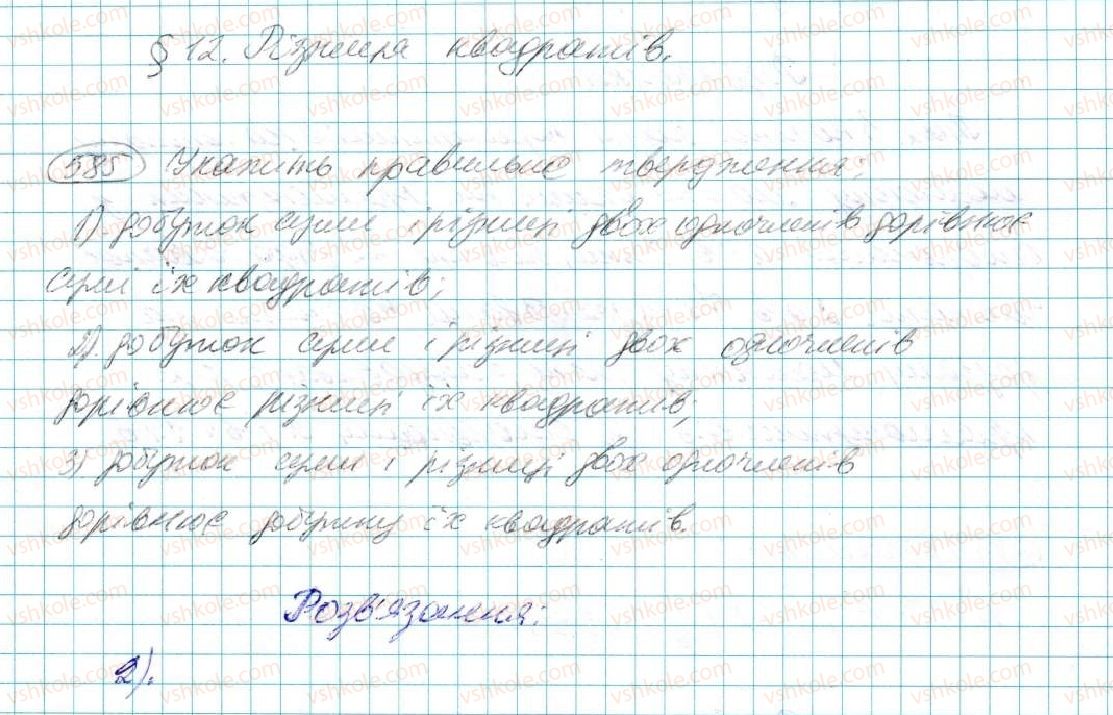 § 12. Різниця квадратів.
585 Укажіть правильне твердження:
1) добуток суми і різниці двох одночленів дорівнює
сумі їх квадратів;
2) добуток суми і різниці двох одночленів
дорівнює різниці їх квадратів;
3) добуток суми і різниці двох одночленів
дорівнює добутку їх квадратів.
Розв'язання:
2).